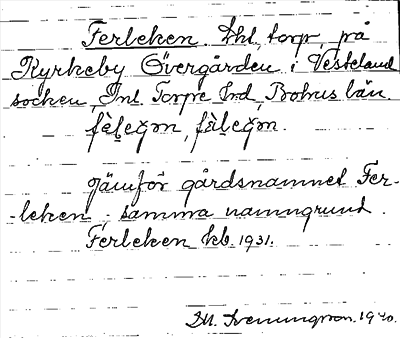 Ferleken. Lht, torp, på
Kyrkeby Övergården i Vesteland
socken, Inl. Torpe hd, Bohus län.
fèḷeg̃m, fàḷeg̃m.
Jämför gårdsnamnet Fer-
-leken i samma namngrund.
Ferleken kb. 1931.
D. H. Svenungsson. 1940.